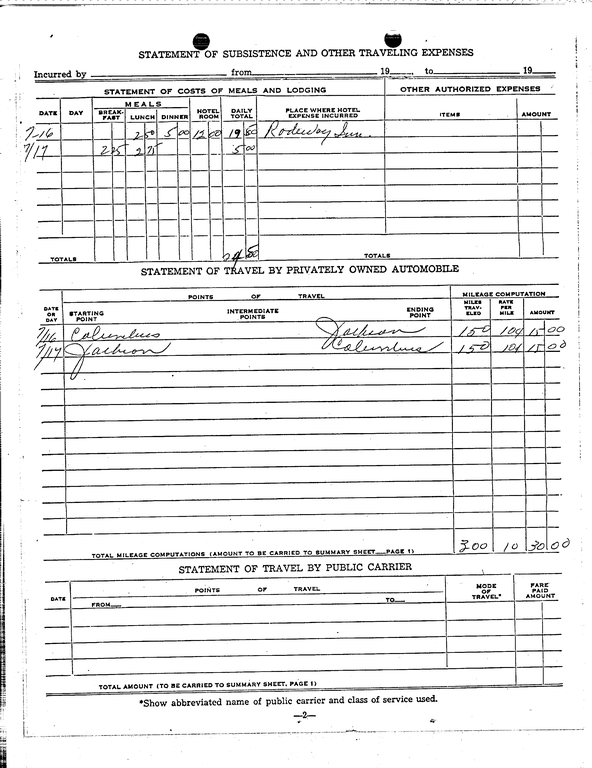 STATEMENT OF SUBSISTENCE AND OTHER TRAVELING EXPENSES
Incurred by from 19 to 19
STATEMENT OF COSTS OF MEALS AND LODGING OTHER AUTHORIZED EXPENSES
DATE DAY MEALS BREAK-FAST LUNCH DINNER HOTEL ROOM DAILY TOTAL PLACE WHERE HOTEL EXPENSE INCURRED ITEMS AMOUNT
7-16 2 50 5 00 12 00 19 50 Rodeway Inn.
7/17 2 25 2 75 5 00
TOTALS 24 50 TOTALS
STATEMENT OF TRAVEL BY PRIVATELY OWNED AUTOMOBILE
DATE OR DAY POINTS OF TRAVEL MILEAGE COMPUTATION
STARTING POINT INTERMEDIATE POINTS ENDING POINT MILES TRAV-ELED RATE PER MILE AMOUNT
7/16 Columbus Jackson 150 10¢ 15 00
7/17 Jackson Columbus 150 10¢ 15 00
TOTAL MILEAGE COMPUTATIONS (AMOUNT TO BE CARRIED TO SUMMARY SHEET PAGE 1) 300 10 30 00
STATEMENT OF TRAVEL BY PUBLIC CARRIER
DATE POINTS OF TRAVEL MODE OF TRAVEL* FARE PAID AMOUNT
FROM TO
TOTAL AMOUNT (TO BE CARRIED TO SUMMARY SHEET, PAGE 1)
*Show abbreviated name of public carrier and class of service used.
—2—